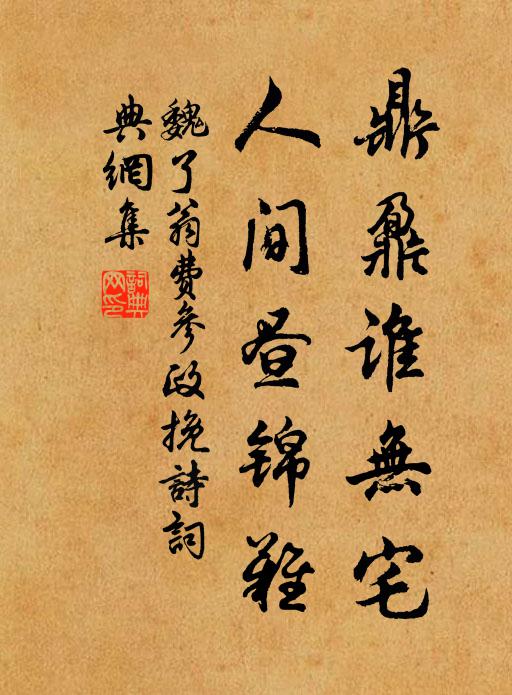 鼎鼐誰無宅
人間昼锦難
魏了翁費參政挽詩詞
典網集
詞典網印